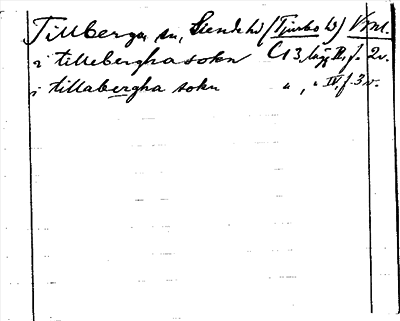 Tillberga sn, Siende hd (Tjurbo hd) Vstml.
i tillebergha sokn C 13, lägg II, f. 2v.
i tillabergha sokn " , " IV, f. 3v.